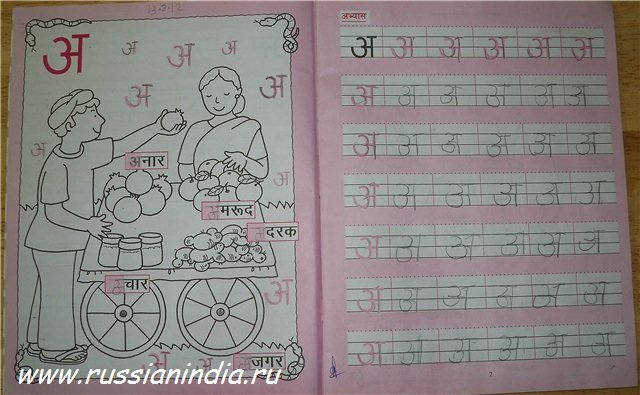 13-3-12
अ अ अ अ
अ अ
अ
अनार
अ
अमरूद
अदरक
अचार
अ
अ अ अजगर
अभ्यास
अ अ अ अ अ अ
अ अ अ अ अ अ
अ अ अ अ अ अ
अ अ अ अ अ अ
अ अ अ अ अ अ
अ अ अ अ अ अ
अ अ अ अ अ अ
www.russianindia.ru